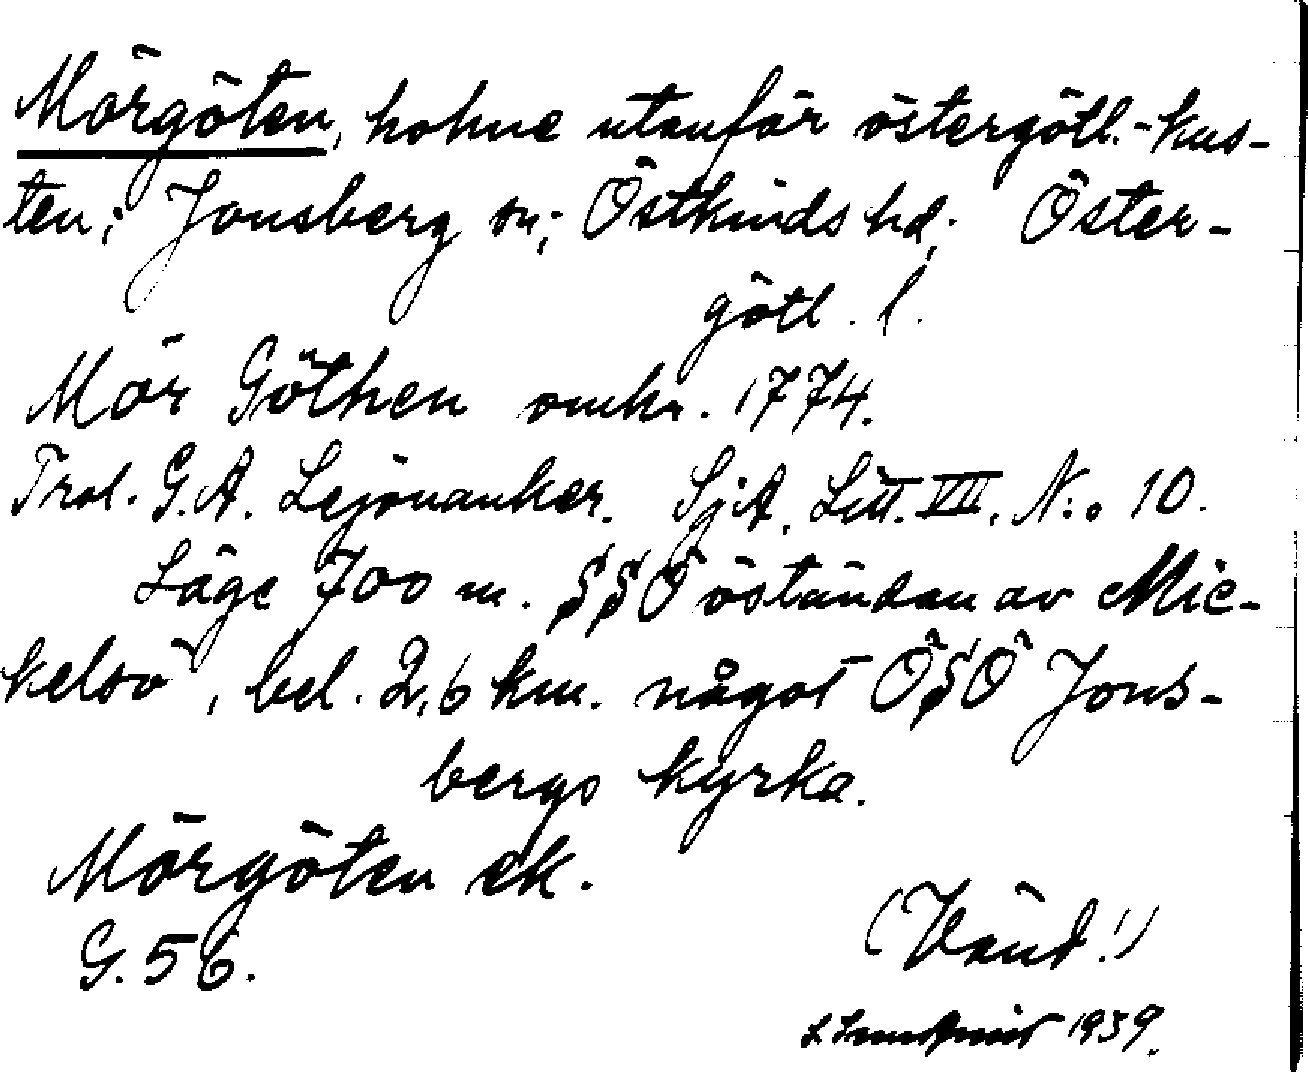 Mörgöten, holme utanför östergötl.-kus-
ten; Jonsberg sn; Östkinds hd; Öster-
götl. l.
Mör Göthen omkr. 1774.
Trol. G.A. Lejonanker. SjA. Litt. VII. N:o 10.
Läge 700 m. SSÖ öständan av Mic-
kelsö, bel. 2,6 km. något ÖSÖ Jons-
bergs kyrka.
Mörgöten ek.
G. 56.
(Vänd!)
1939.